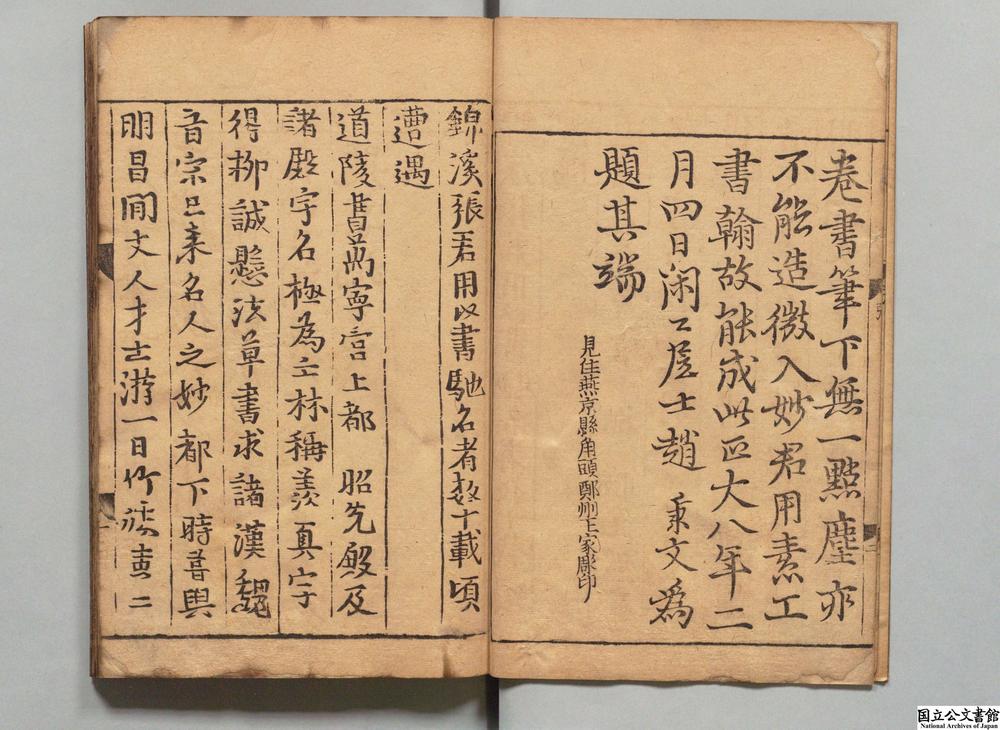 卷書筆下無一點塵亦
不能造微入妙君用素工
書翰故能成此正大八年二
月四日閑〻居士趙秉文爲
題其端
見住燕京縣角頭鄭州王家彫印
錦溪張君用以書馳名者數十載頃
遭遇
道陵書萬寧宫上都 昭先殿及
諸殿字名極為士林稱羨真字
得柳誠懸法草書求諸漢魏
音宗已來名人之妙都下時普與
明昌間文人才士游一日竹溪
国立公文書館
National Archives of Japan